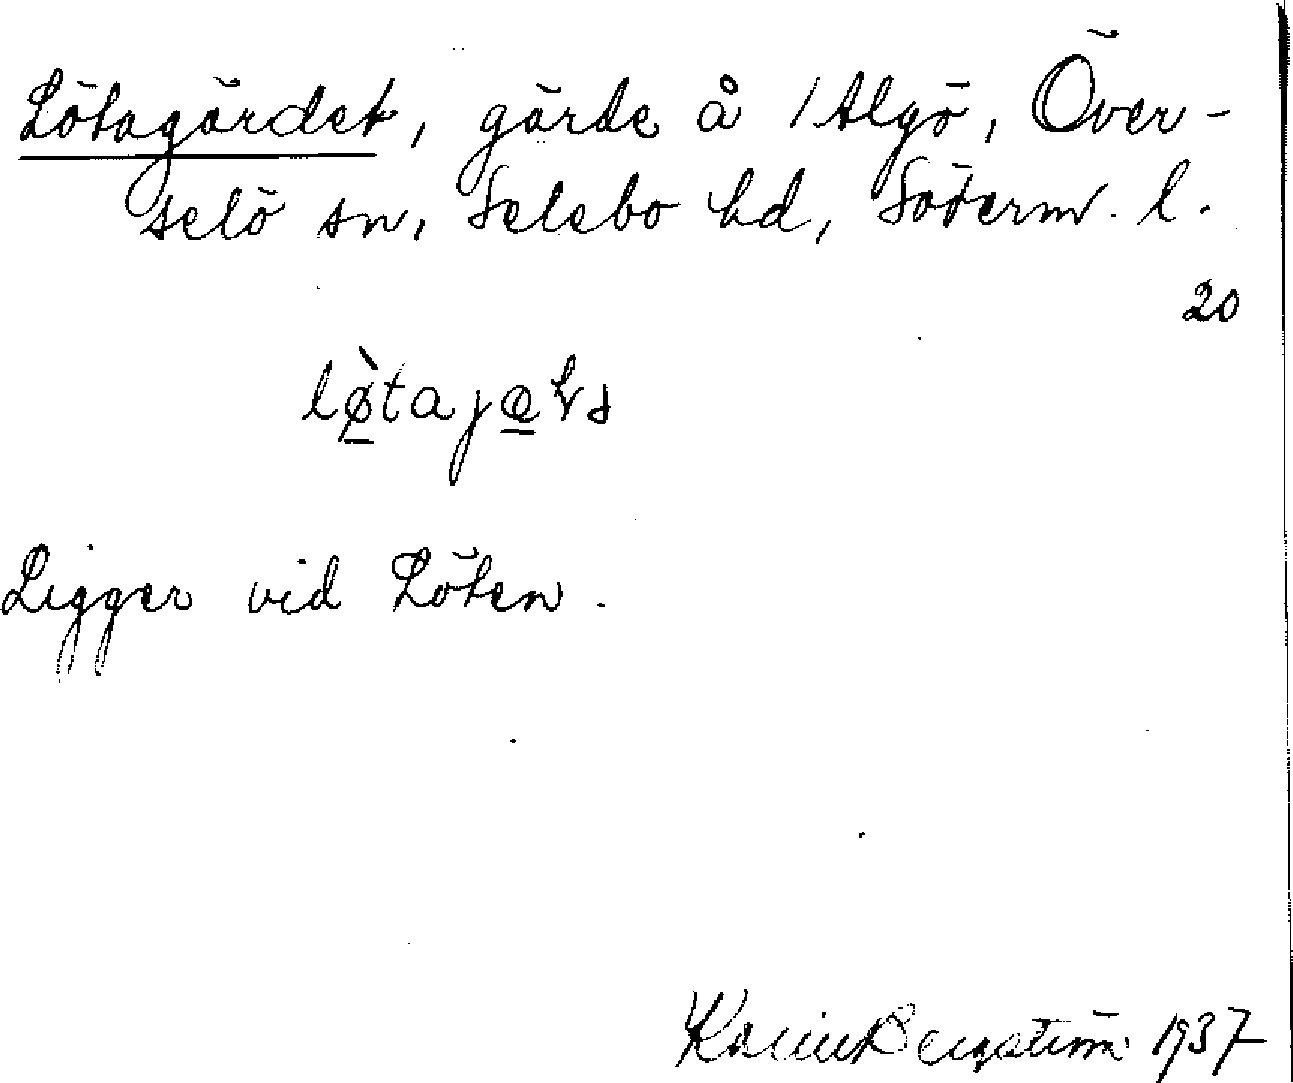 Lötagärdet, gärde å 1 Algö, Över-
selö sn, Selebo hd, Söderm. l.
20
Ligger vid Löten.
Karin Bergström 1937